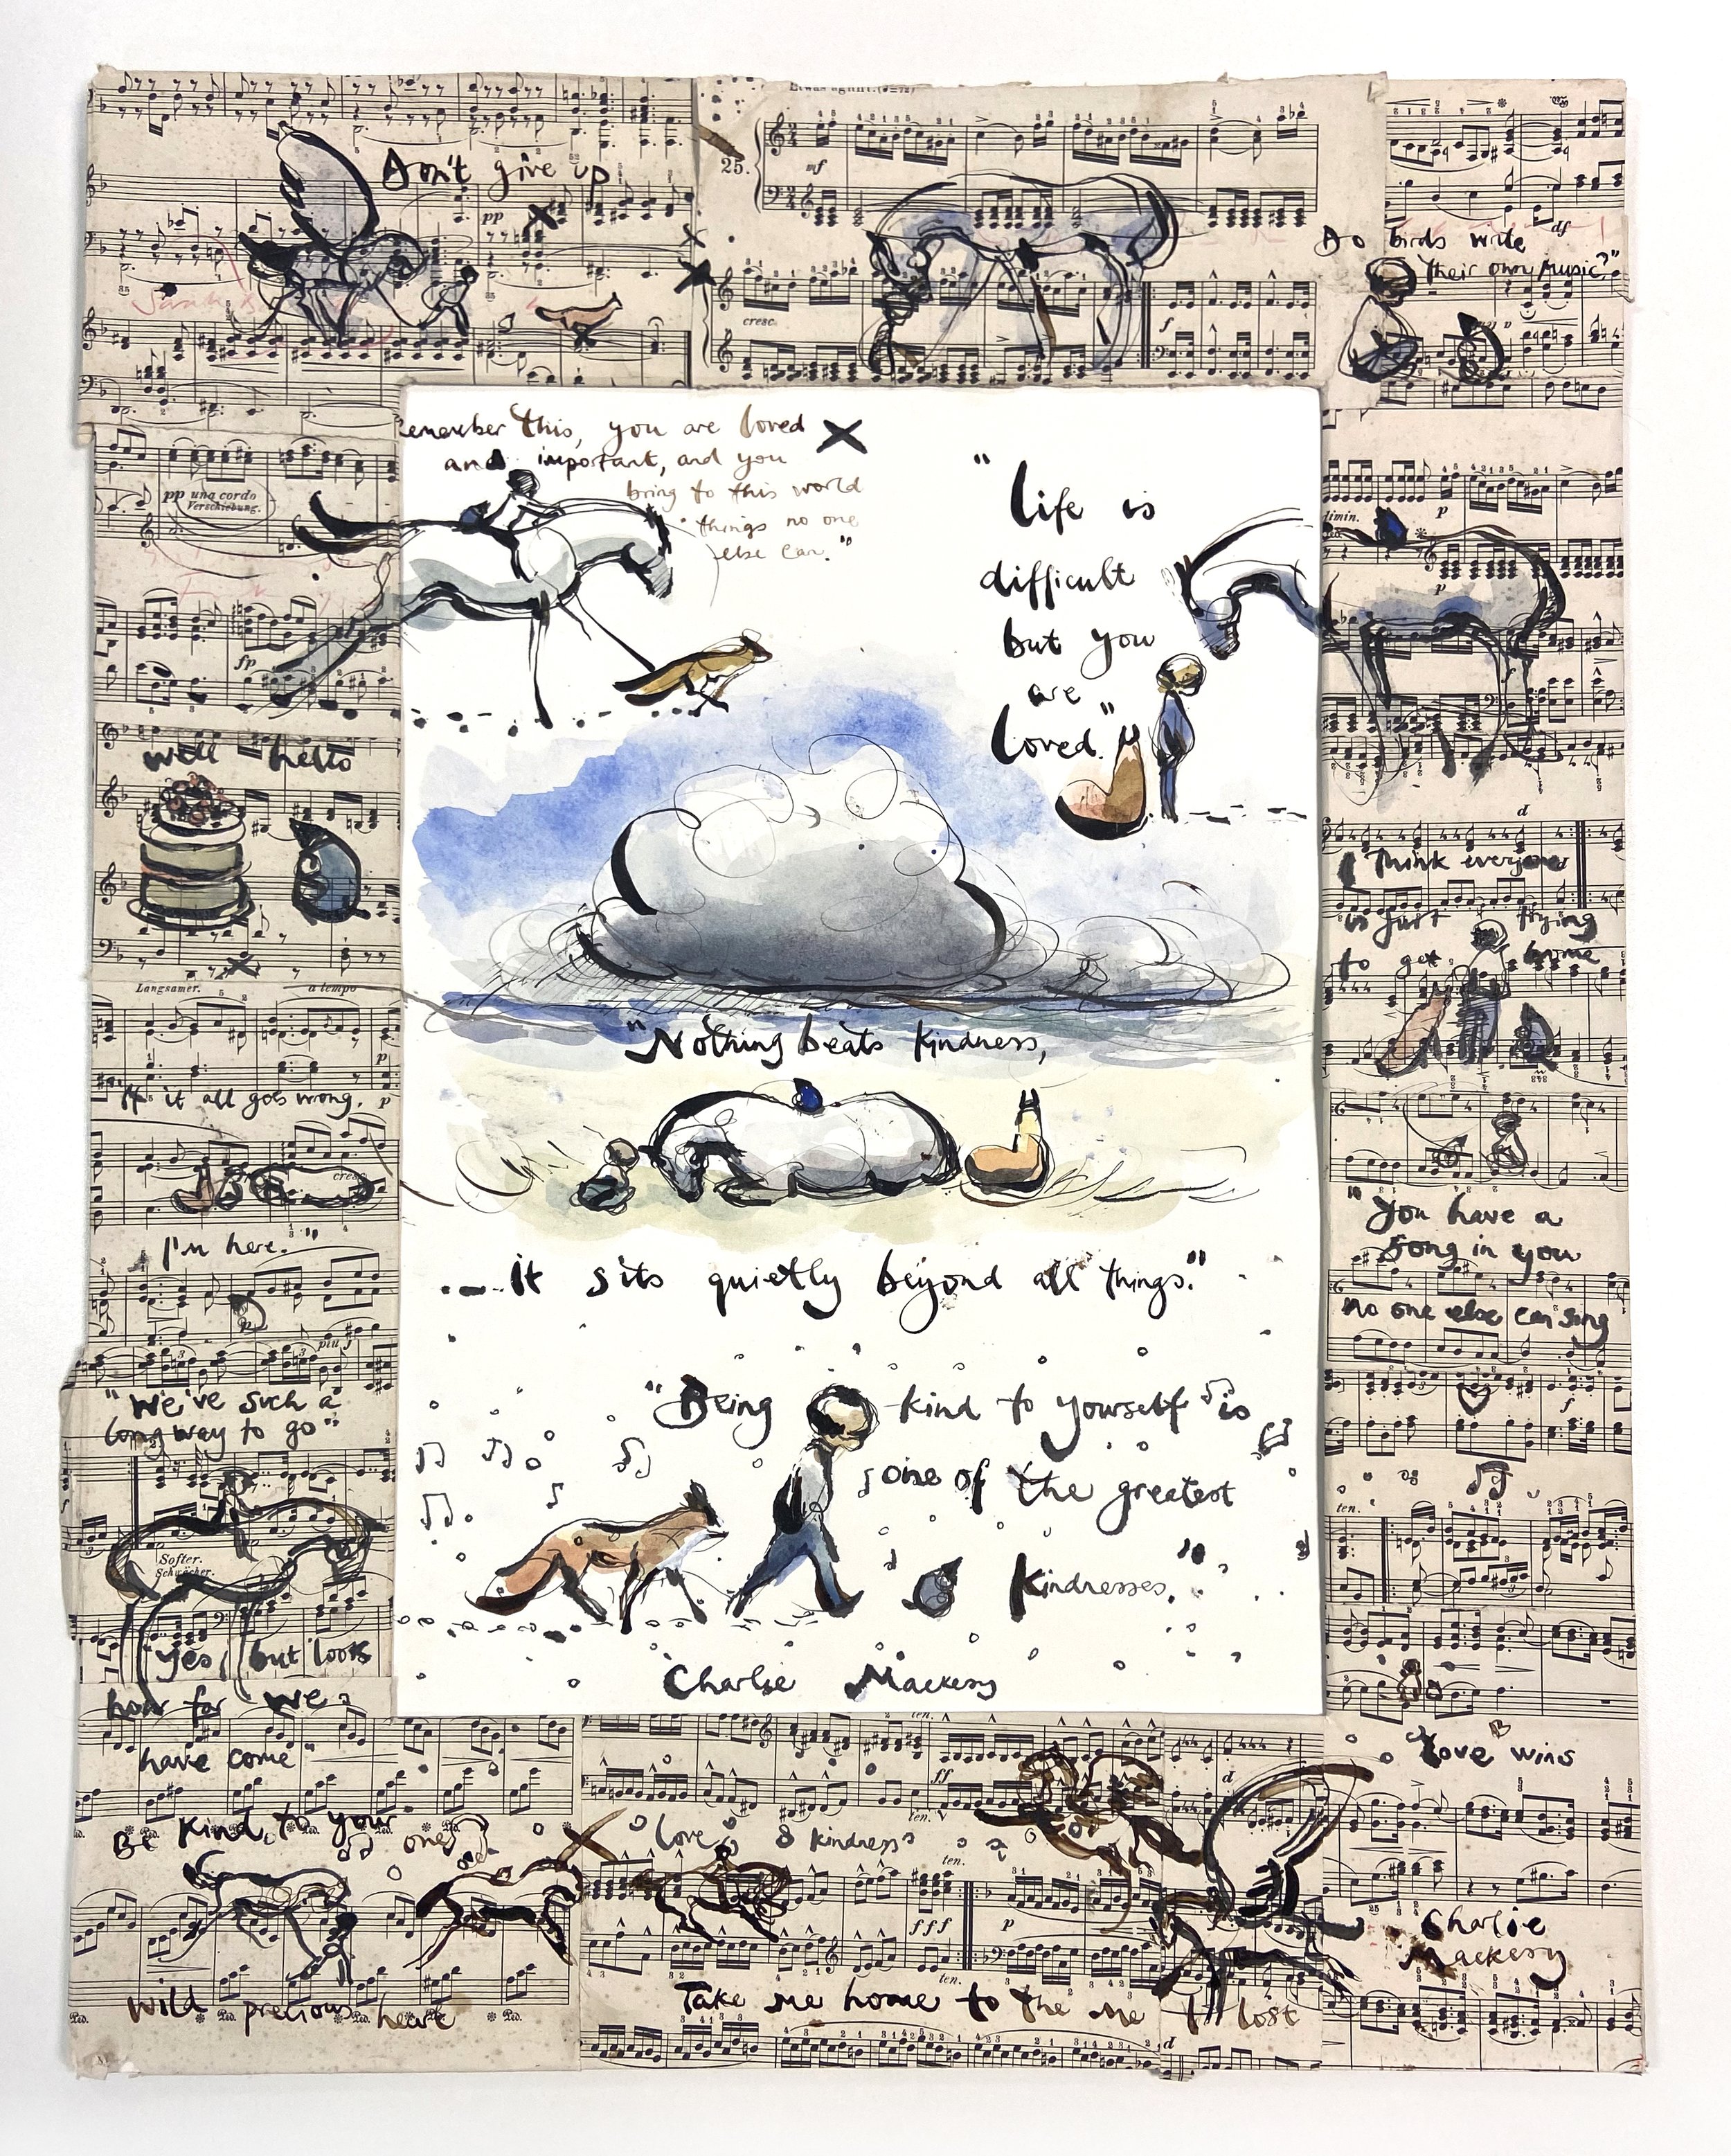 Don't give up
Etwas agitirt.
25.
mf
pp
cresc.
f
Do birds write
their own music?"
df
Remember this, you are loved
and important, and you
bring to this world
things no one
else can."
"Life is
difficult
but you
are
loved."
pp una corda
Verschiebung.
fp
dimin.
p
p
well hello
Langsamer.
a tempo
p
I think everyone
is just trying
to get home
"Nothing beats kindness,
If it all goes wrong,
p
cresc.
I'm here."
... it sits quietly beyond all things."
"You have a
song in you
no one else can sing
più f
"We've such a
long way to go"
Softer.
Schwächer.
"yes, but look
how far we
have come"
"Being kind to yourself is
one of the greatest
kindnesses."
Charlie Mackesy
ten.
f
Love wins
Be kind to your one
wild precious heart
Love & kindness
ten.
ff
ten.
fff
p
ten.
d
Take me home to the me I lost
Charlie
Mackesy